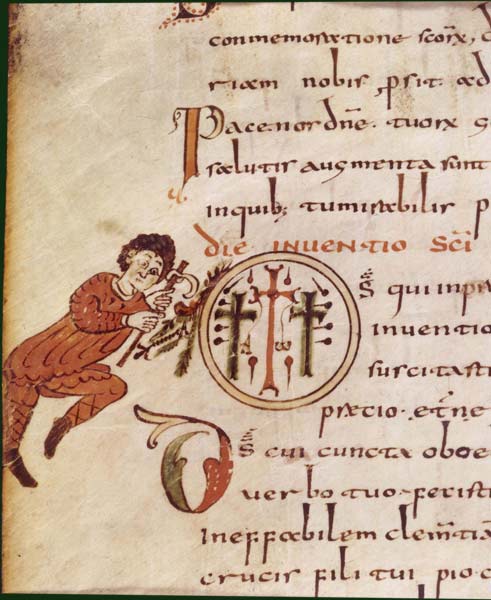 conmemoratione scorx, c
riam nobis psit. ad
Pace nor dne. tuorx g
salutis augmenta sunt
inquib; tu mirabilis p
die INVENTIO SCI
Ds qui in prae
inventio
suscitasti
praetio. et ne
Ds cui cuncta oboe
verbo tuo. perfecti
ineffabilem clemtia
crucis filii tui pio. c